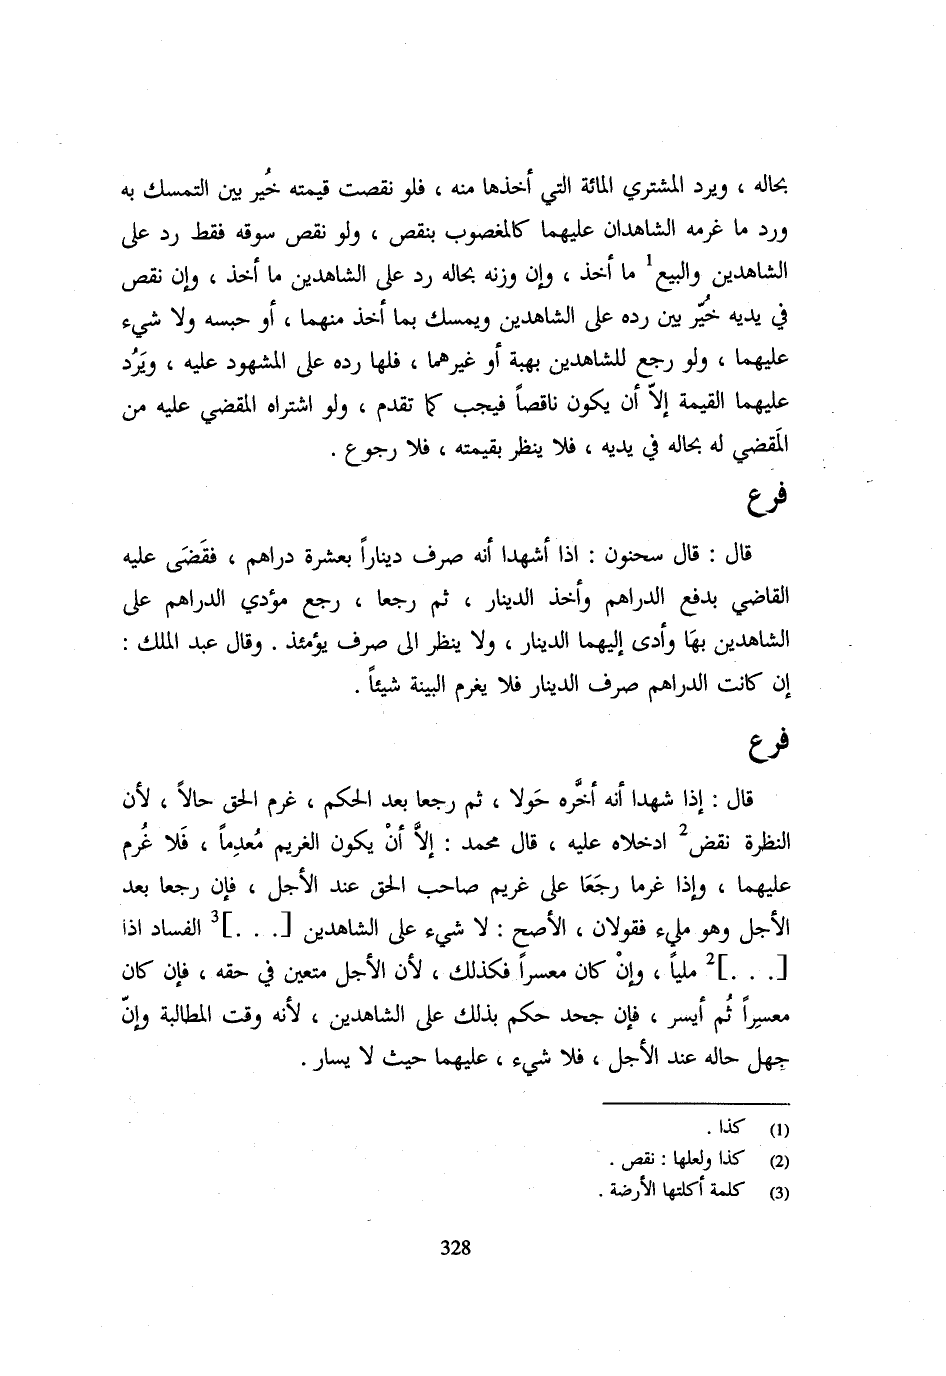 بحاله ، ويرد المشتري المائة التي أخذها منه ، فلو نقصت قيمته خُير بين التمسك به
ورد ما غرمه الشاهدان عليهما كالمغصوب بنقص ، ولو نقص سوقه فقط رد على
الشاهدين والبيع1 ما أخذ ، وإن وزنه بحاله رد على الشاهدين ما أخذ ، وإن نقص
في يديه خُيّر بين رده على الشاهدين ويمسك بما أخذ منهما ، أو حبسه ولا شيء
عليهما ، ولو رجع للشاهدين بهبة أو غيرهما ، فلها رده على المشهود عليه ، ويَرُد
عليهما القيمة إلاّ أن يكون ناقصاً فيجب كما تقدم ، ولو اشتراه المقضي عليه من
المَقضي له بحاله في يديه ، فلا ينظر بقيمته ، فلا رجوع .
فرع
قال : قال سحنون : اذا أشهدا أنه صرف ديناراً بعشرة دراهم ، فقَضَى عليه
القاضي بدفع الدراهم وأخذ الدينار ، ثم رجعا ، رجع مؤدي الدراهم على
الشاهدين بهَا وأدى إليهما الدينار ، ولا ينظر الى صرف يؤمئذ . وقال عبد الملك :
إن كانت الدراهم صرف الدينار فلا يغرم البينة شيئاً .
فرع
قال : إذا شهدا أنه أخَّره حَولا ، ثم رجعا بعد الحكم ، غرم الحق حالاً ، لأن
النظرة نقض2 ادخلاه عليه ، قال محمد : إلاَّ أنْ يكون الغريم مُعدِماً ، فَلا غُرم
عليهما ، وإذا غرما رجَعَا على غريم صاحب الحق عند الأجل ، فإن رجعا بعد
الأجل وهو مليء فقولان ، الأصح : لا شيء على الشاهدين [. . .]3 الفساد اذا
[. . .]2 ملياً ، وإنْ كان معسراً فكذلك ، لأن الأجل متعين في حقه ، فإن كان
معسِراً ثُم أيسر ، فإن جحد حكم بذلك على الشاهدين ، لأنه وقت المطالبة وإنّ
جهل حاله عند الأجل ، فلا شيء ، عليهما حيث لا يسار .
(1) كذا .
(2) كذا ولعلها : نقص .
(3) كلمة أكلتها الأرضة .
328